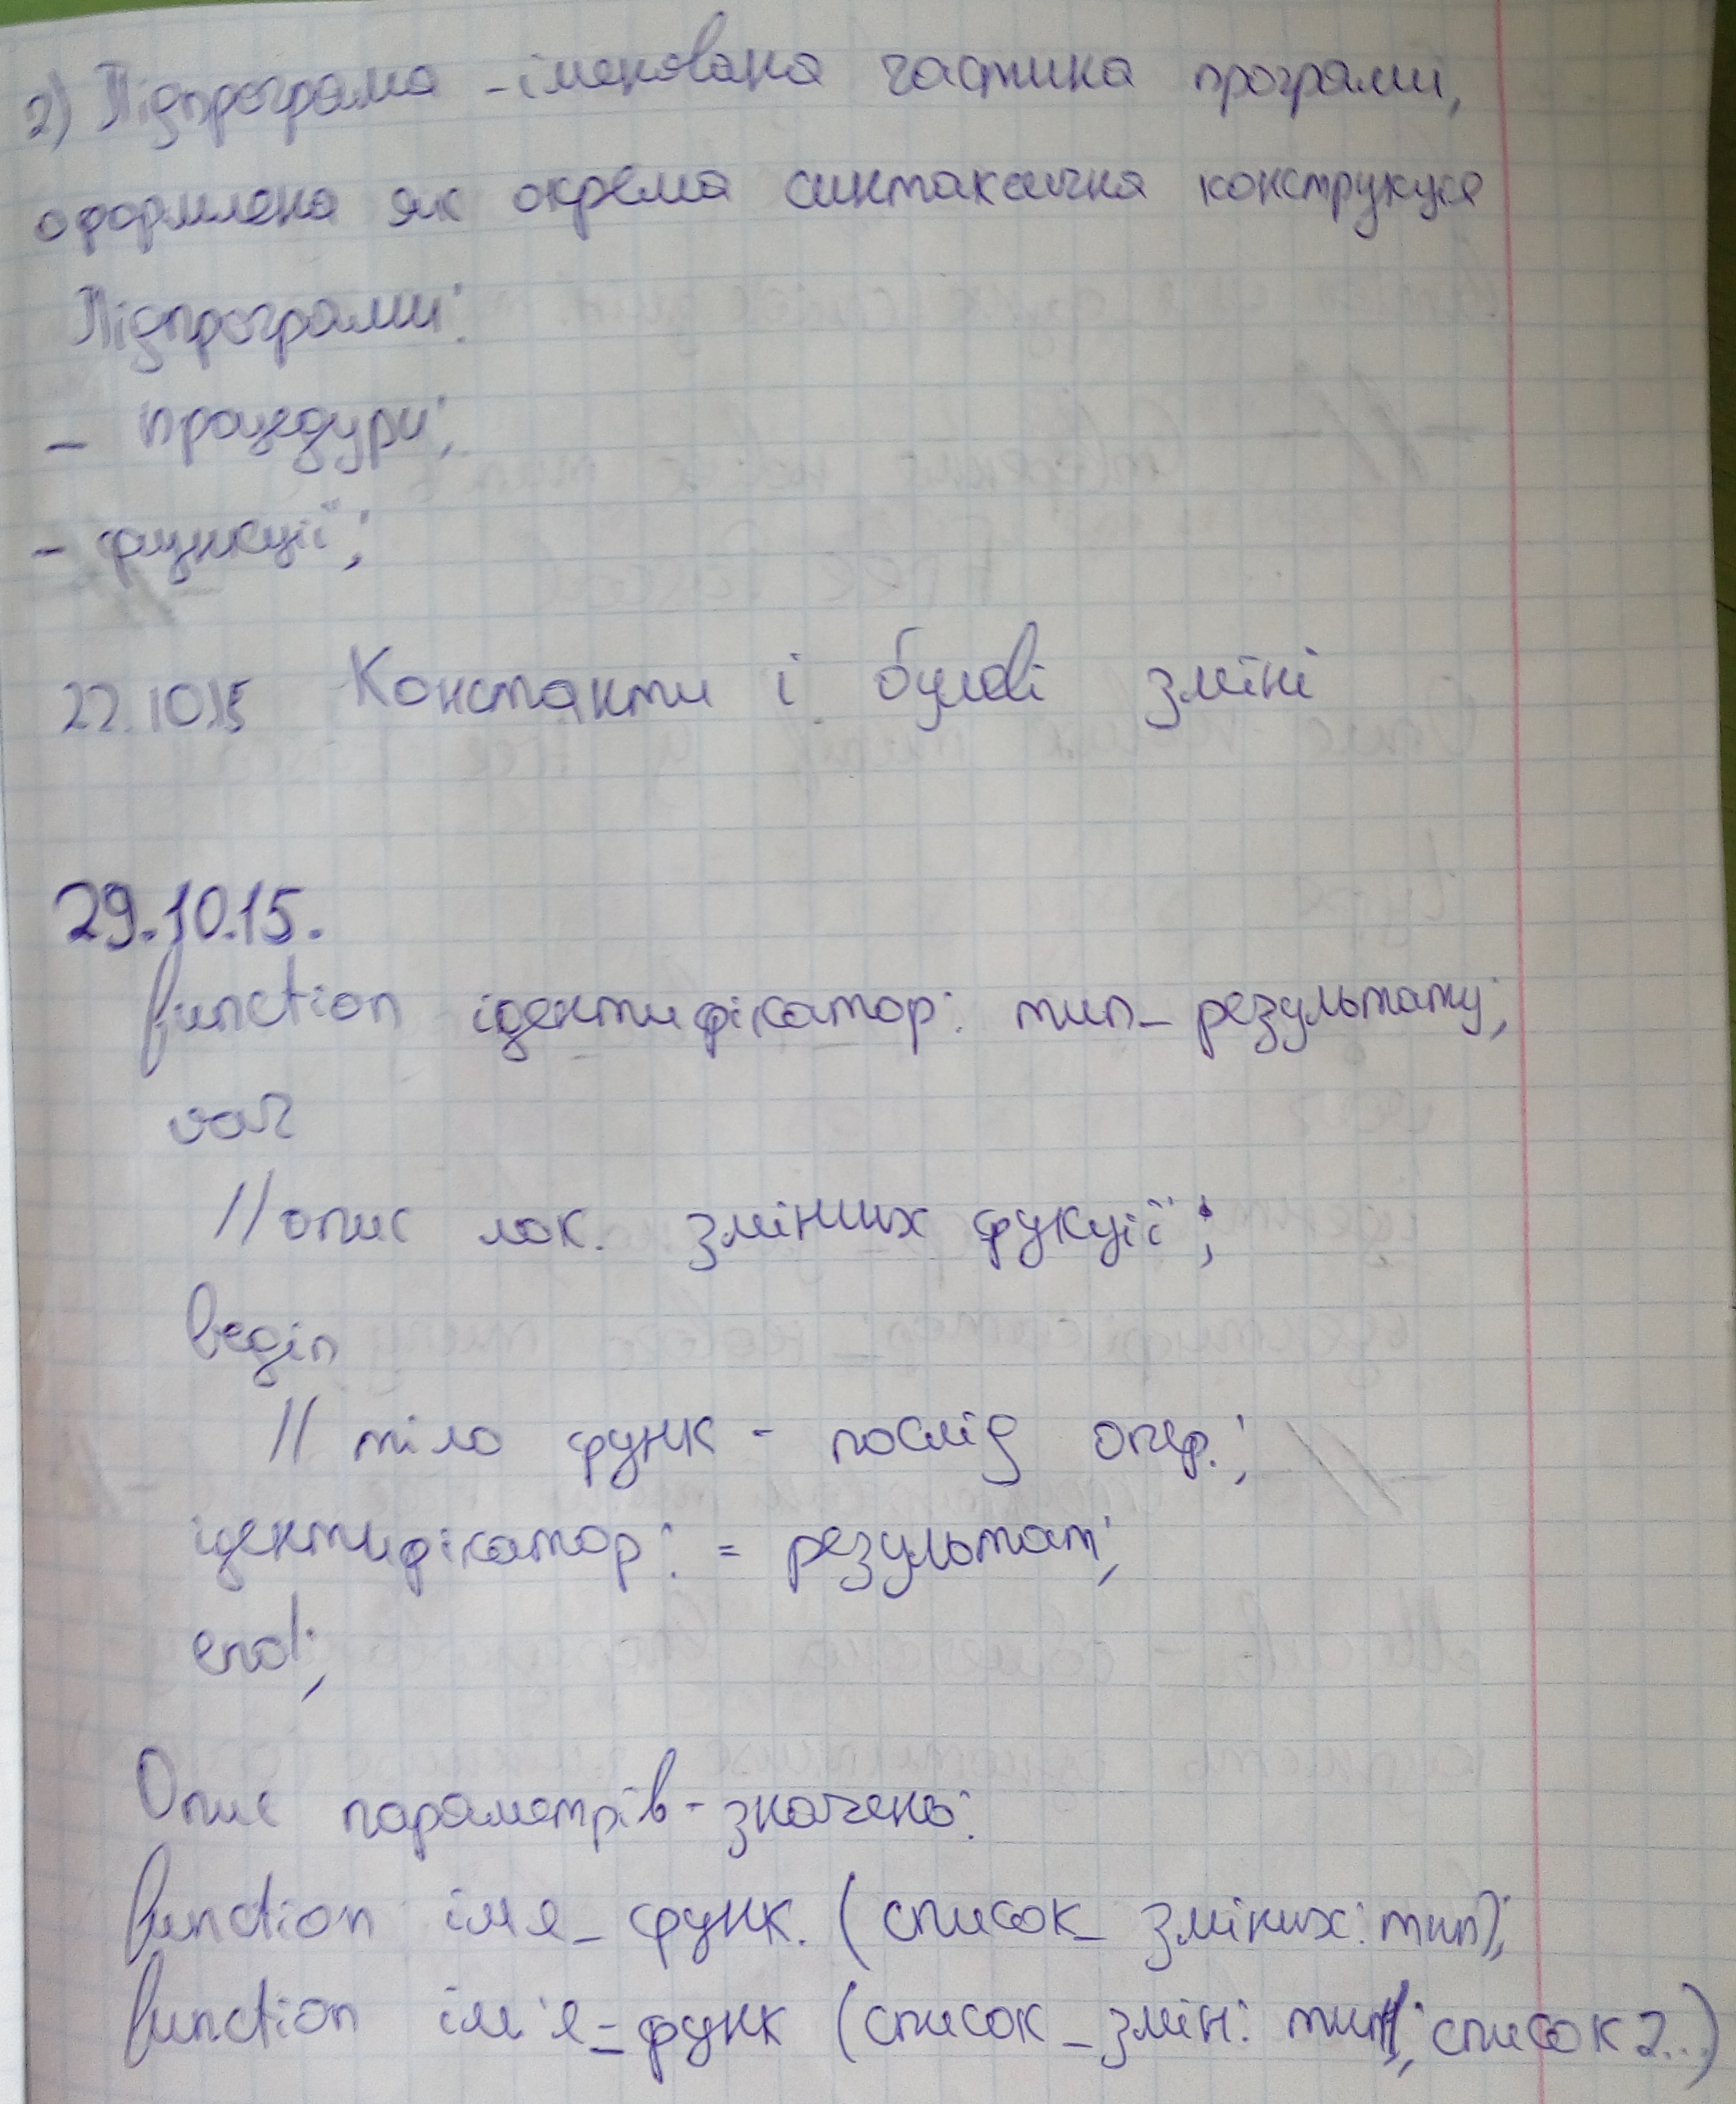 2) Підпрограма - іменована частина програми,
оформлена як окрема синтаксична конструкція
Підпрограми:
- процедури;
- функції;
22.10.15 Константи і булові зміні
29.10.15.
function ідентифікатор: тип_результату;
var
//опис лок. змінних фукції;
begin
// тіло функ - послід опер.;
ідентифікатор: = результат;
end;
Опис параметрів-значень:
function імя_функ. (список_зміних: тип);
function ім'я_функ (список_змін: тип; список 2...)